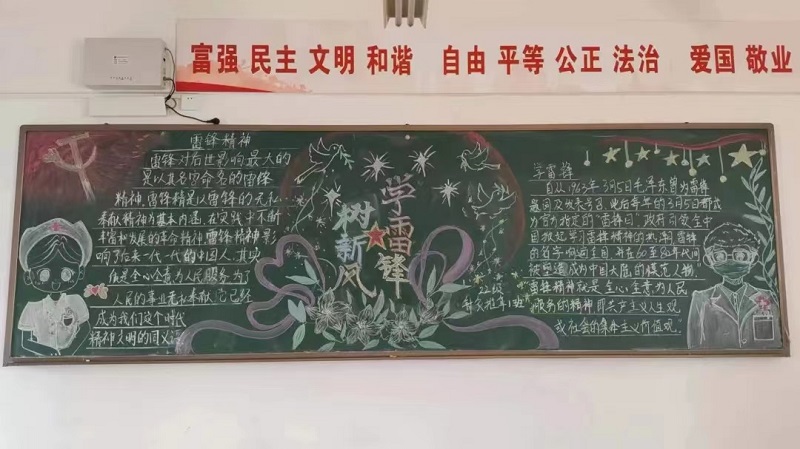 富强 民主 文明 和谐 自由 平等 公正 法治 爱国 敬业
雷锋精神
雷锋对后世影响最大的
是以其名字命名的雷锋
精神,雷锋精神是以雷锋的无私
奉献精神为基本内涵,在实践中不断
丰富和发展的革命精神,雷锋精神影
响了后来一代一代的中国人,其实
质是全心全意为人民服务,为了
人民的事业无私奉献,它已经
成为我们这个时代
精神文明的同义语
学雷锋
树新风
22级
1班
学雷锋
自从1963年3月5日毛泽东曾为雷锋
此后每年的3月5日都成
为官方指定的"雷锋日"
目掀起学习雷锋精神的热潮,雷锋
在60至80年代间
被塑造成为中国大陆的模范人物
雷锋精神就是全心全意为人民
服务的精神,即共产主义人生观
或社会的集体主义价值观。